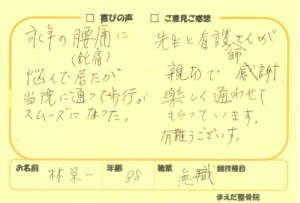 □ 喜びの声
□ ご意見ご感想
永年の腰痛に
(鈍痛)
悩んで居たが
当院に通って歩行が
スムーズになった。
先生と看護師さんが
親切で 感謝
楽しく通わせて
もらっています。
有難うございます。
お名前 林 栄一
年齢 88
職業 無職
競技種目
まえだ整骨院